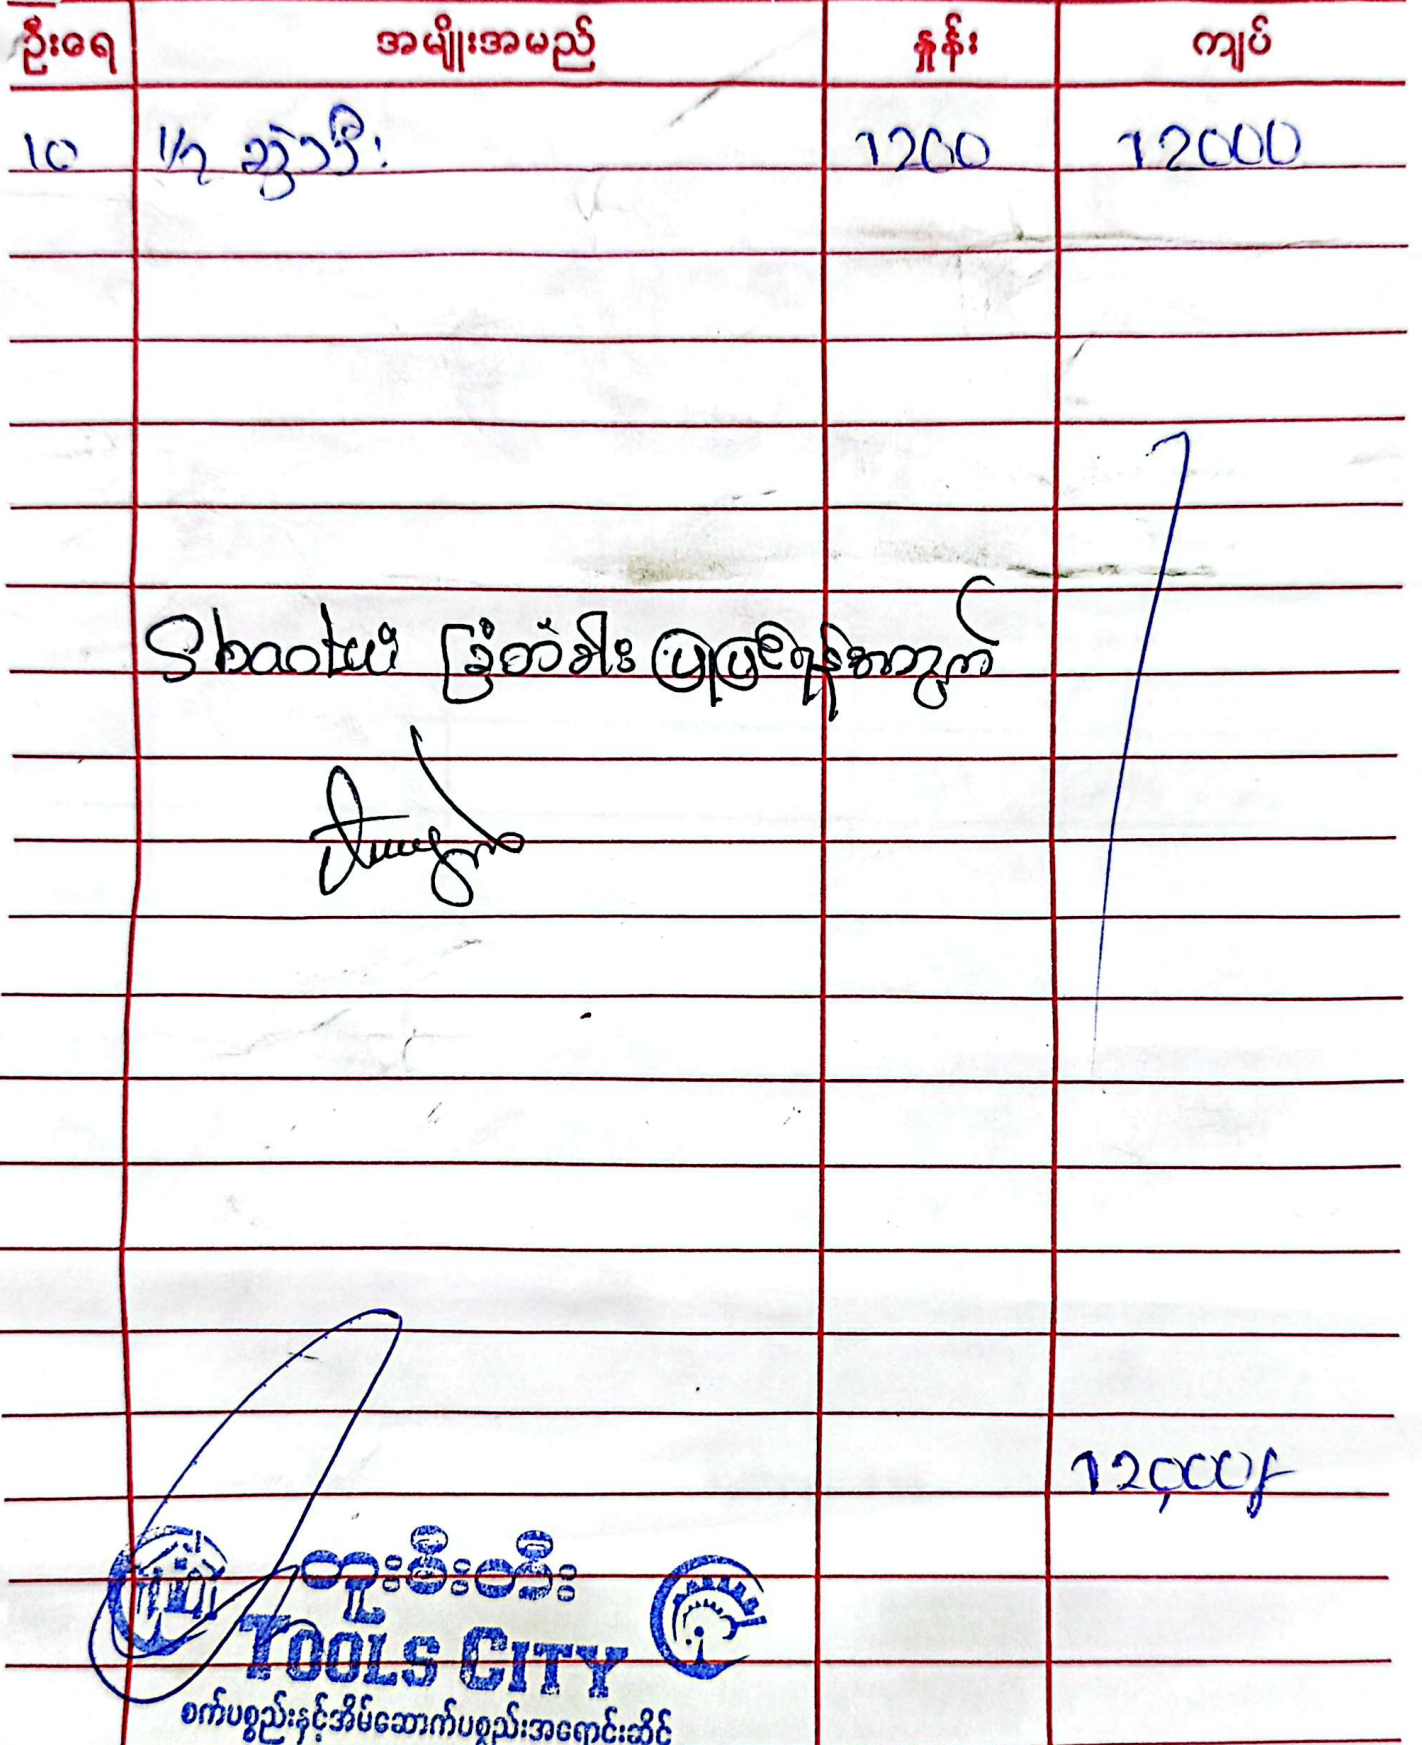 ဦးရေ အမျိုးအမည် နှုန်း ကျပ်
10 1/2 1200 12000
ခြံတံခါး ပြုပြင်ရန်အတွက်
12000/-
တူးစ်စီးတီး
TOOLS CITY
စက်ပစ္စည်းနှင့်အိမ်ဆောက်ပစ္စည်းအရောင်းဆိုင်